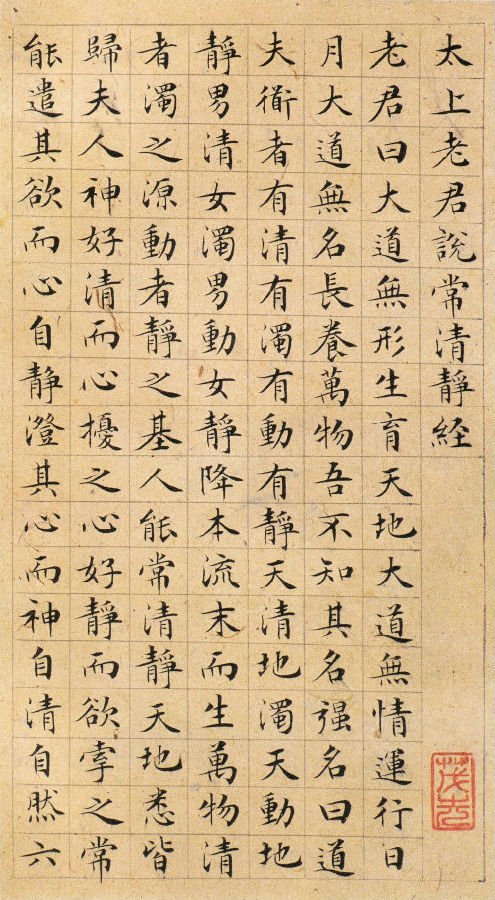 太上老君說常清靜經
老君曰大道無形生育天地大道無情運行日
月大道無名長養萬物吾不知其名强名曰道
夫衜者有清有濁有動有靜天清地濁天動地
靜男清女濁男動女靜降本流末而生萬物清
者濁之源動者靜之基人能常清靜天地悉皆
歸夫人神好清而心擾之心好靜而欲牽之常
能遣其欲而心自静澄其心而神自清自然六